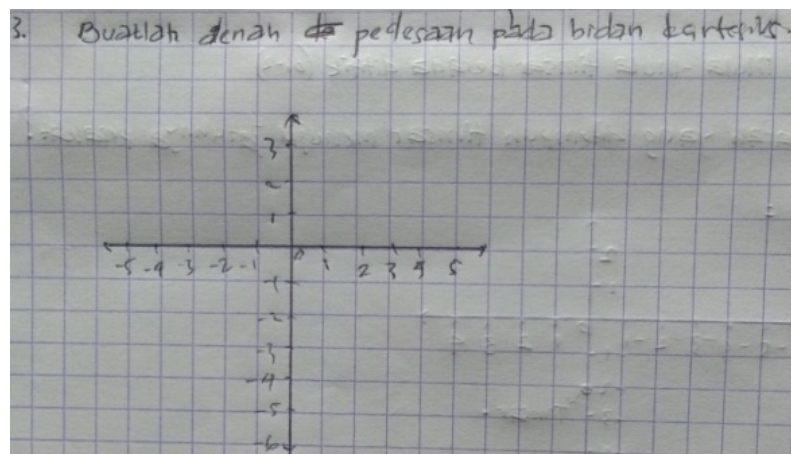 3. Buatlah denah pedesaan pada bidan kartesius.
3
2
1
-5 -4 -3 -2 -1 0 1 2 3 4 5
-1
-2
-3
-4
-5
-6